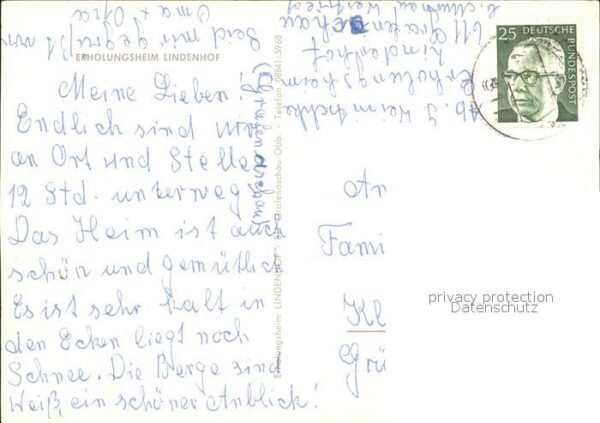 ERHOLUNGSHEIM LINDENHOF
Meine Lieben!
Endlich sind wir
an Ort und Stelle
12 Std. unterweg
Das Heim ist auch
schön und gemütlich
Es ist sehr kalt in
den Ecken liegt noch
Schnee. Die Berge sind
Weiß, ein schöner Anblick!
Seid nur gegrüßt von
Oma + Opa
Erholungsheim LINDENHOF Grafenaschau Obb. Telefon (08841) 5968
(Grafenaschau)
Erholungsheim
Lindenhof
25 DEUTSCHE BUNDESPOST
An
Fami
Kl
Grü
privacy protection
Datenschutz